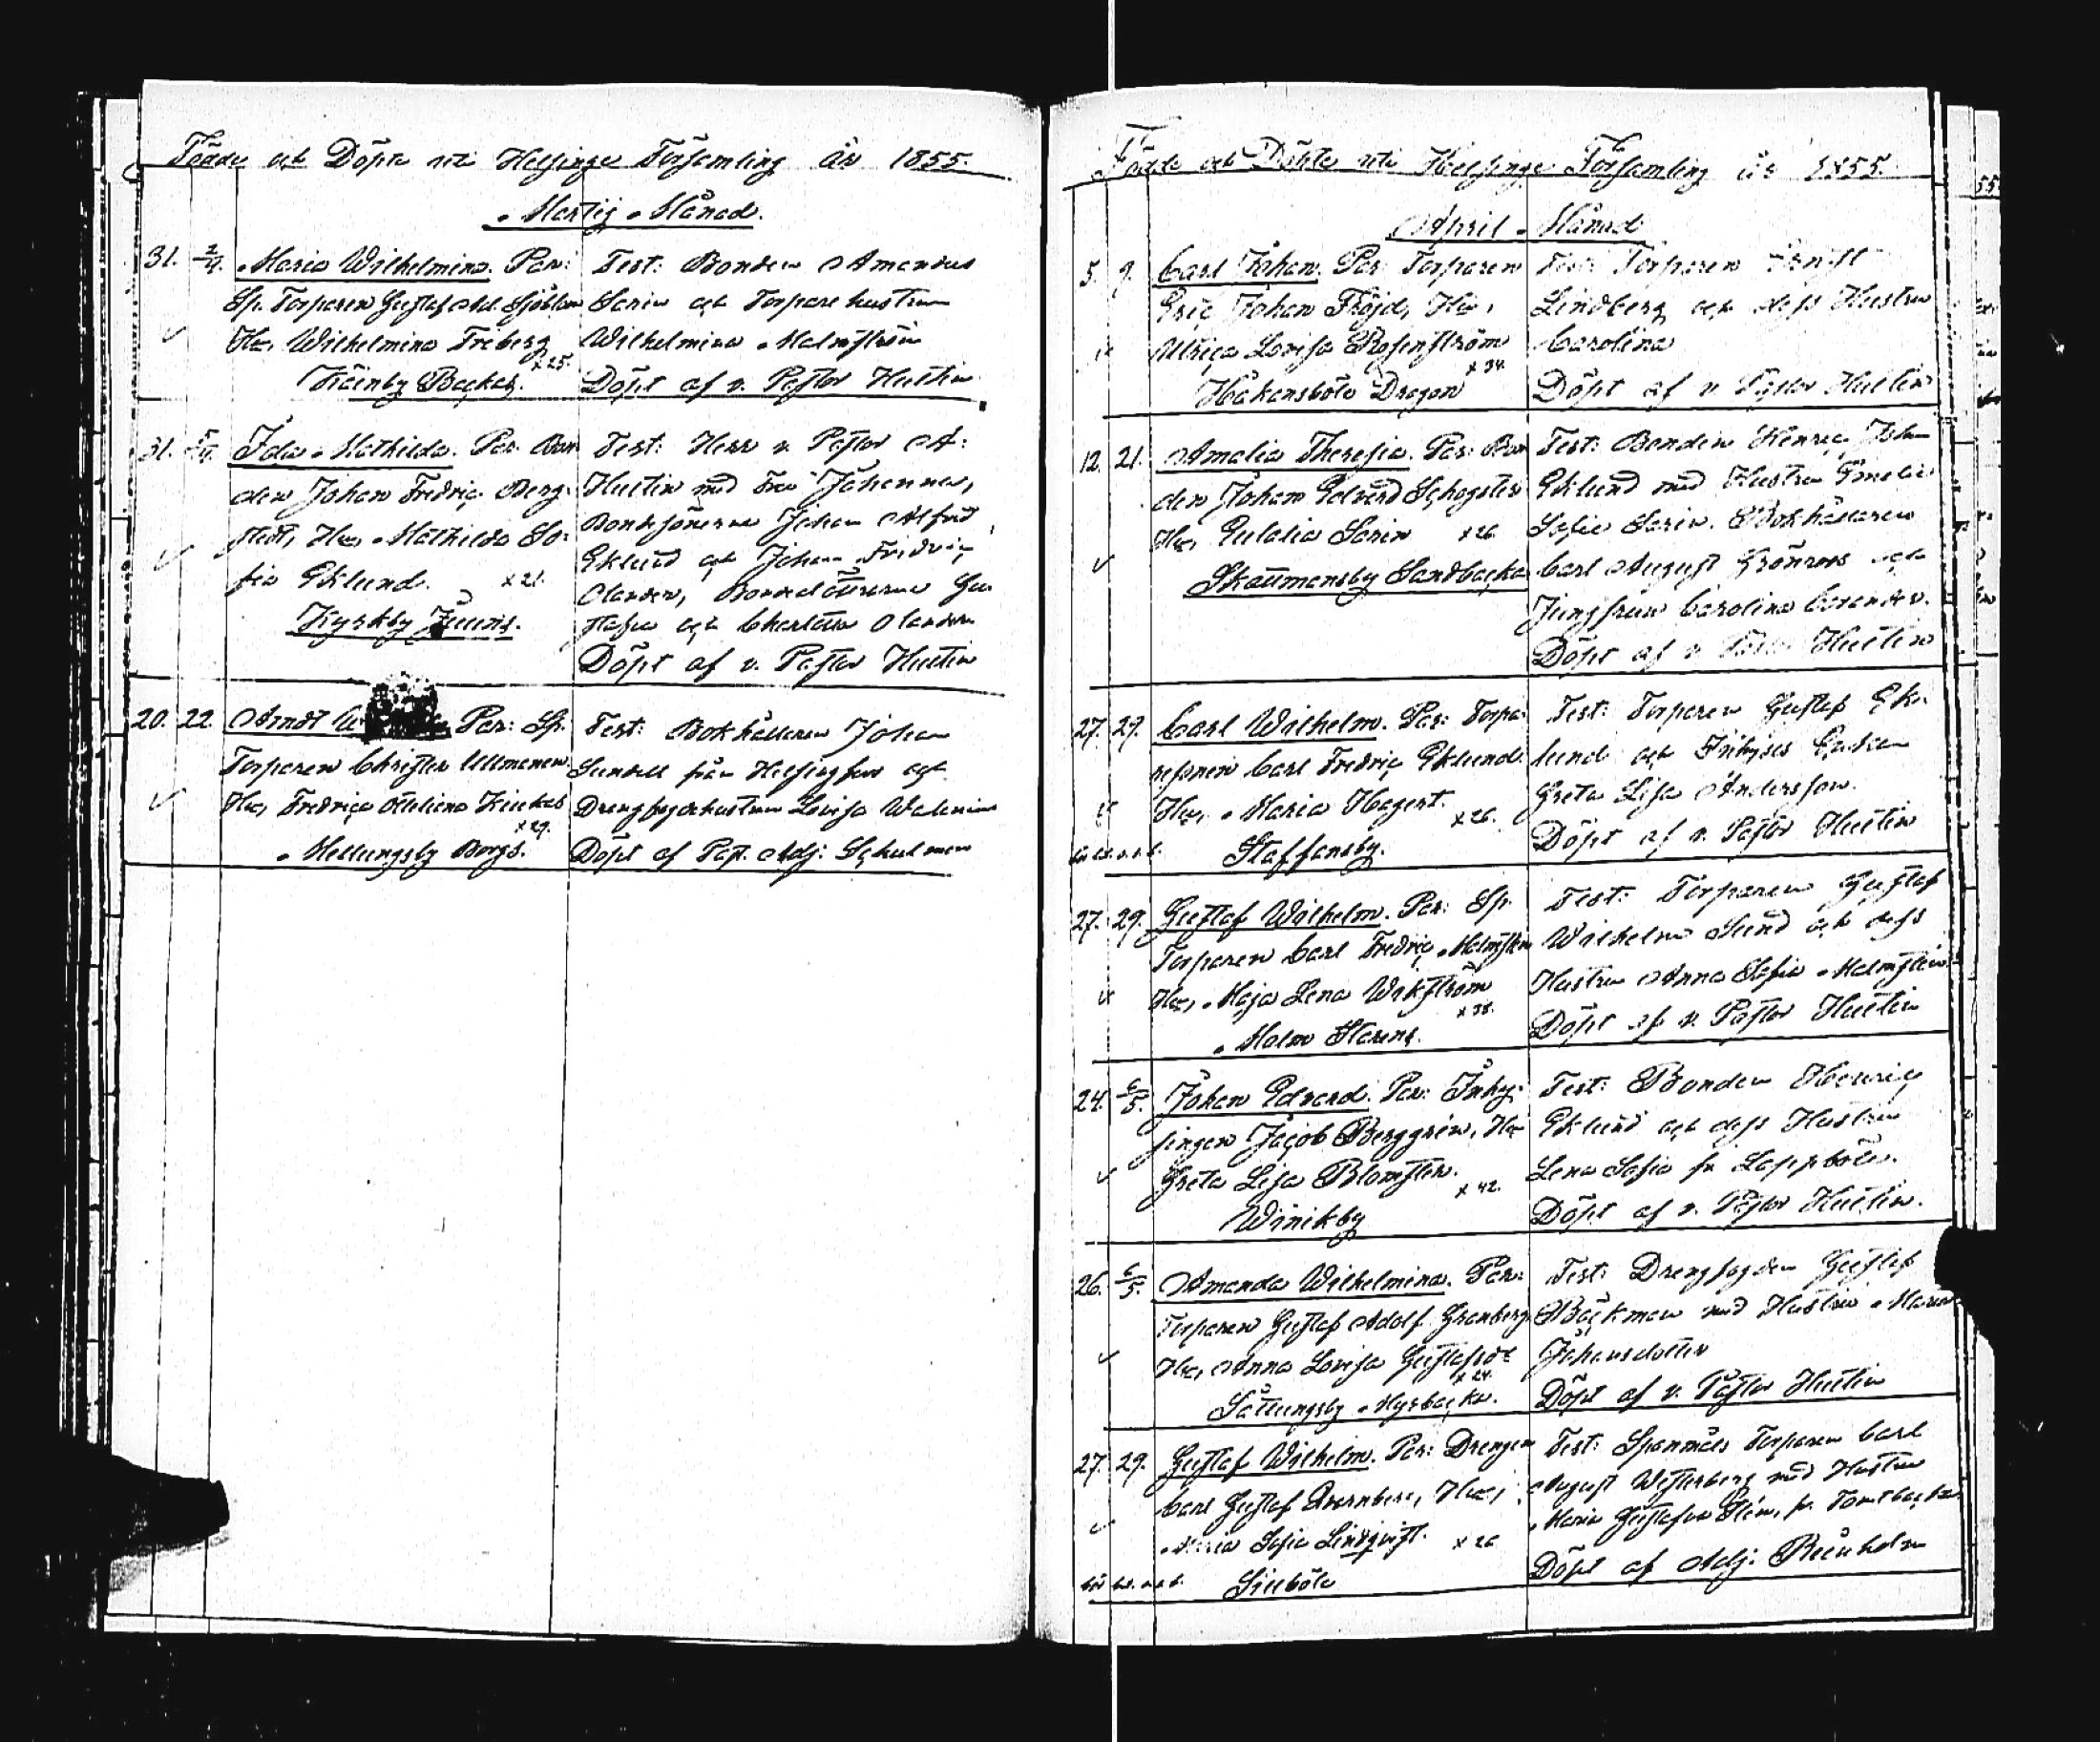 Födde och Döpte uti Helsinge Församling år 1855.
Martij Månad.
31. 2/4. Maria Wilhelmina. Par:
Sp. Torparen Gustaf Ad. Sjöblom
Hu, Wilhelmina Friberg
x 25.
Backas.
Test: Bonden Amandus
Sarin och Torpare hustrun
Wilhelmina Malmström
Döpt af v. Pastor Hultin
31. 5/4. Ida Mathilda. Par: Bon
den Johan Fredric Berg-
stedt, Hu, Mathilda So-
fia Eklund. x 21.
Kyrkby Juuns.
Test: Herr v. Pastor A:
Hultin med Fru Johanna,
Bondesönerne Johan Alfred
Eklund och Johan Fridric
Olander, Bondedöttrarne Gu
stafva och Charlotta Olander
Döpt af v. Pastor Hultin
20. 22. Arndt Par: Sp.
Torparen Christer Ullmanen
Hu, Fredrica Ottiliana
x 29.
Mellungsby Borgs.
Test: Bokhållaren Johan
Sundell från Helsingfors och
Drengfogdehustrun Lovisa
Döpt af Past. Adj: Schulman
Födde och Döpte uti Helsinge Församling år 1855.
April Månad
5. 9. Carl Johan. Par: Torparen
Eric Johan Fröjd, Hu,
Ulrica Lovisa Rosenström
x 34.
Håkansböle Dragon
Test: Torparen Ernst
Lindberg och dess Hustru
Carolina
Döpt af v. Pastor Hultin
12. 21. Amalia Theresia. Par: Bon
den Johan Edvard Schogster
Hu, Eulalia Sarin x 26
Skattmansby Sandbacka
Test: Bonden Henric Johan
Eklund med Hustru Emelie
Sofie Sarin. Bokhållaren
Carl August Grönroos och
Jungfrun Carolina
Döpt af v. Pastor Hultin
27. 29. Carl Wilhelm. Par: Torpa-
resonen Carl Fredric Eklund.
Hu, Maria Hagert. x 26.
Staffansby.
Test: Torparen Gustaf Ek-
lund och Inhyses Enkan
Greta Lisa Andersson.
Döpt af v. Pastor Hultin
27. 29. Gustaf Wilhelm. Par: Sp.
Torparen Carl Fredric Malmsten
Hu, Maja Lena Wikström
x 38.
Malm
Test: Torparen Gustaf
Wilhelm Sund och dess
Hustru Anna Sofia Malmsten
Döpt af v. Pastor Hultin
24. 6/5. Johan Edvard. Par: Inhy-
singen Jacob Berggrén, Hu
Greta Lisa Blomsten.
x 42.
Winikby
Test: Bonden Henric
Eklund och dess Hustru
Lena Sofia fr. Lappböle.
Döpt af v. Pastor Hultin.
26. 6/5. Amanda Wilhelmina. Par:
Torparen Gustaf Adolf Granberg
Hu, Anna Lovisa Gustafsdt
x 24.
Sottungsby Nysbacka.
Test: Drengfogden Gustaf
Bäckman med Hustru Maria
Johansdotter
Döpt af v. Pastor Hultin
27. 29. Gustaf Wilhelm. Par: Drengen
Carl Gustaf Hu,
Maria Sofia Lindqvist. x 26
Test: Spanmåls Torparen Carl
August Westerberg med Hustru
Maria Gustafva
Döpt af Adj: